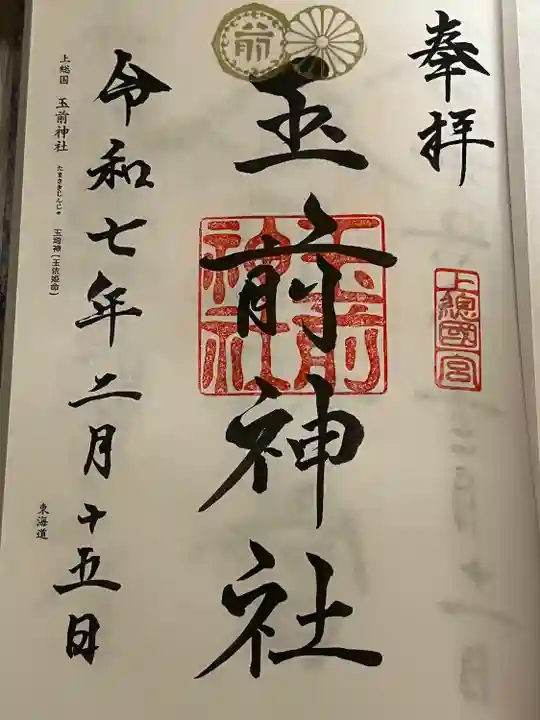 奉拝
上總國宮
前
玉前神社
玉前神社
令和七年二月十五日
上総国 玉前神社 たまさきじんじゃ 玉埼神(玉依姫命)
東海道